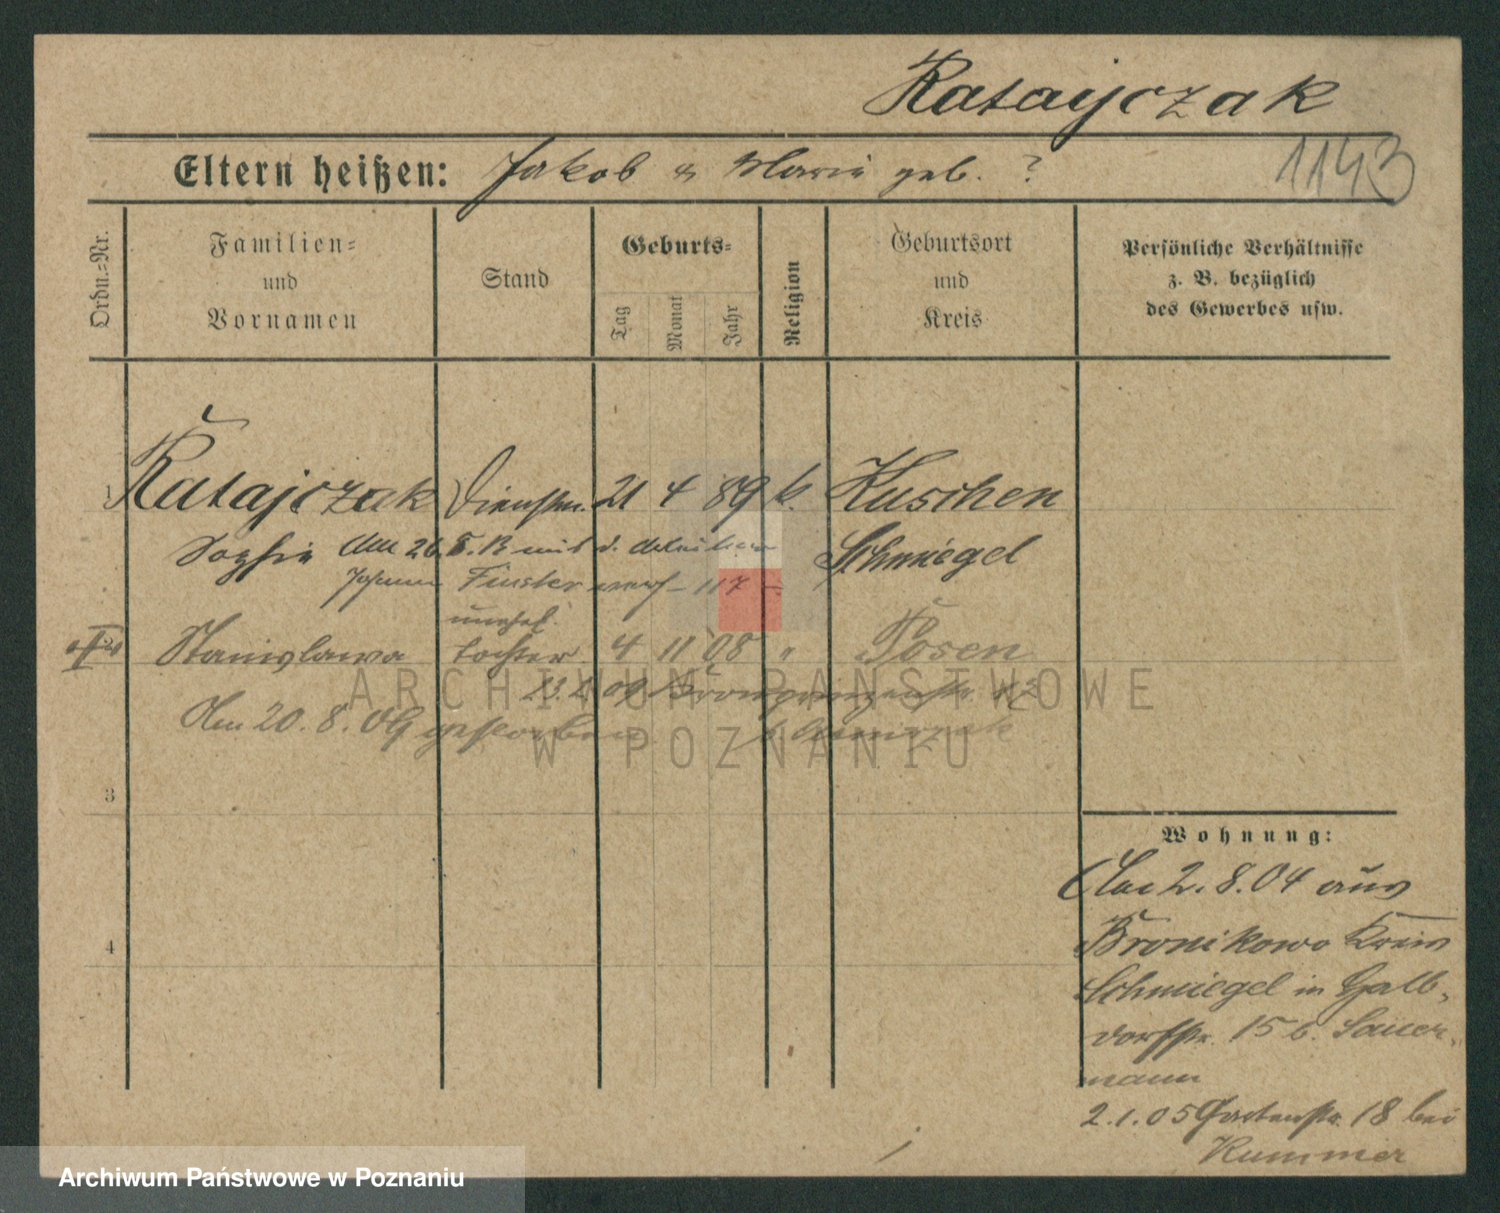 Ratajczak
1143
Eltern heißen: Jakob & Marie geb. ?
Ordn.=Nr.
Familien=
und
Vornamen
Stand
Geburts=
Tag
Monat
Jahr
Religion
Geburtsort
und
Kreis
Persönliche Verhältnisse
z. B. bezüglich
des Gewerbes usw.
1 Ratajczak Dienstm. 21 4 89 k. Kuschen
Sophie Schmiegel
Am 26. 8. 13 mit d.
Johann
unehel.
Stanislawa Tochter 4 11 08 " Posen
Am 20. 8. 09 gestorben
ARCHIWUM PAŃSTWOWE
W POZNANIU
3
4
Wohnung:
Am 2. 8. 04 aus
Bronikowo Kreis
Schmiegel in Gall-
dorfstr. 15 b. Sauer-
mann
2.1.05 Gartenstr. 18 bei
Kummer
Archiwum Państwowe w Poznaniu